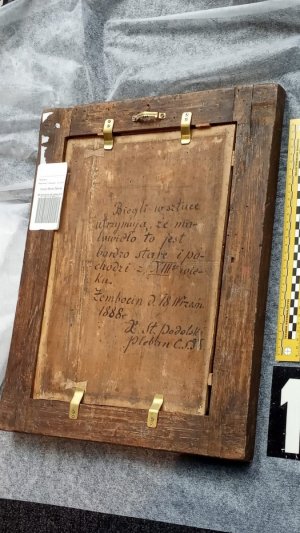 Biegli w sztuce
utrzymują, że ma-
lowidło to jest
bardzo stare i po-
chodzi z XIIIgo wie-
ku.
Zembocin d. 18 Wrześn.
1888r
X. St. Dodolsk
pleban
1